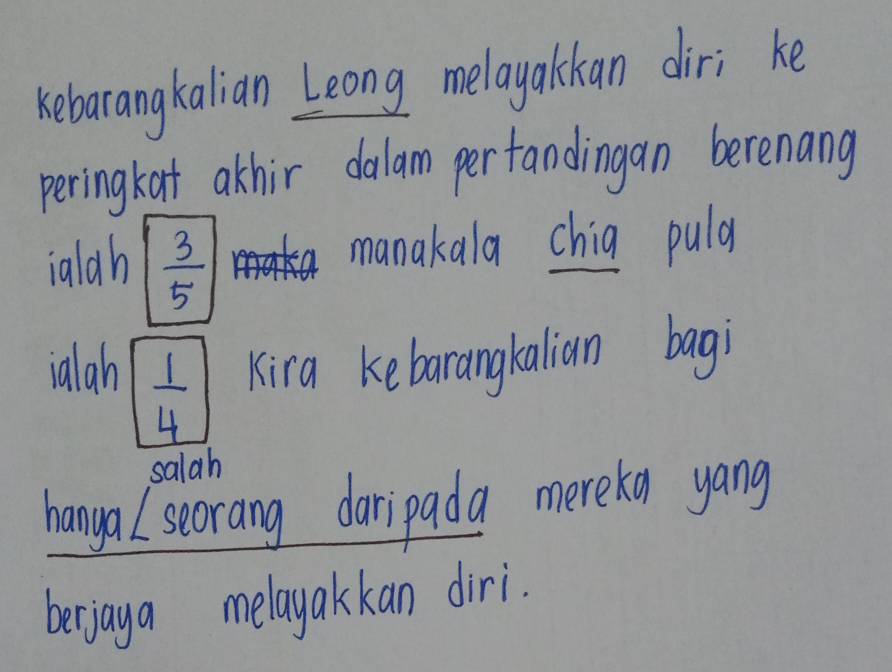 Kebarangkalian Leong melayakkan diri ke
peringkat akhir dalam pertandingan berenang
ialah 3/5 maka manakala chia pula
ialah 1/4 Kira kebarangkalian bagi
salah
hanya seorang daripada mereka yang
berjaya melayakkan diri.